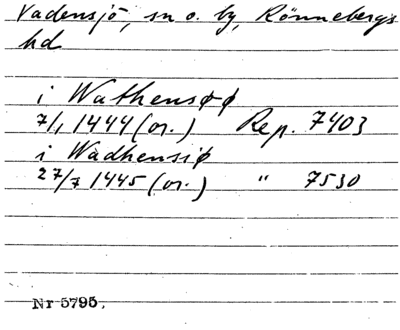 Vadensjö, sn o. by, Rönnebergs
hd
i Wathensøø
7/1 1444 (or.) Rep. 7403
i Wadhensiø
27/7 1445 (or.) " 7530
Nr 5795.